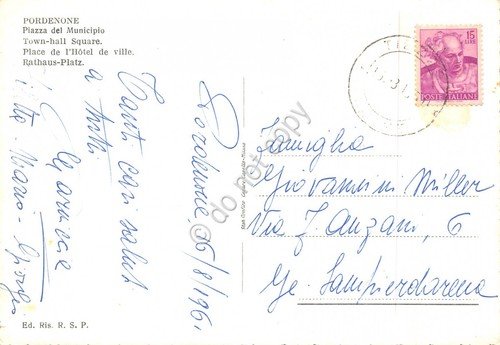 PORDENONE
Piazza del Municipio
Town-hall Square.
Place de l'Hôtel de ville.
Rathaus-Platz.
15
LIRE
POSTE ITALIANE
Pordenone, 16/8/1961
Tanti cari saluti
a tutti
Mario - Giorgio
Famiglia
Giovannini Miller
Via F. Anzani, 6
Ge. Sampierdarena
Ed. Ris. R. S. P.
do not copy